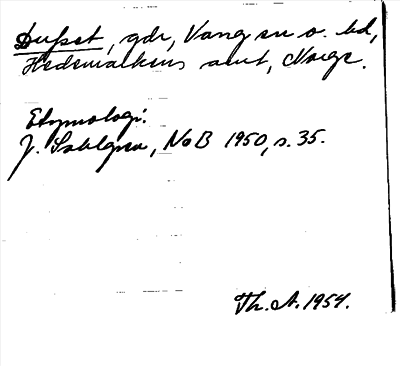 Dufset, gdr, Vang sn o. hd,
Hedemarkens amt, Norge.
Etymologi.
J. Sahlgren, NoB 1950, s. 35.
Th. A. 1954.